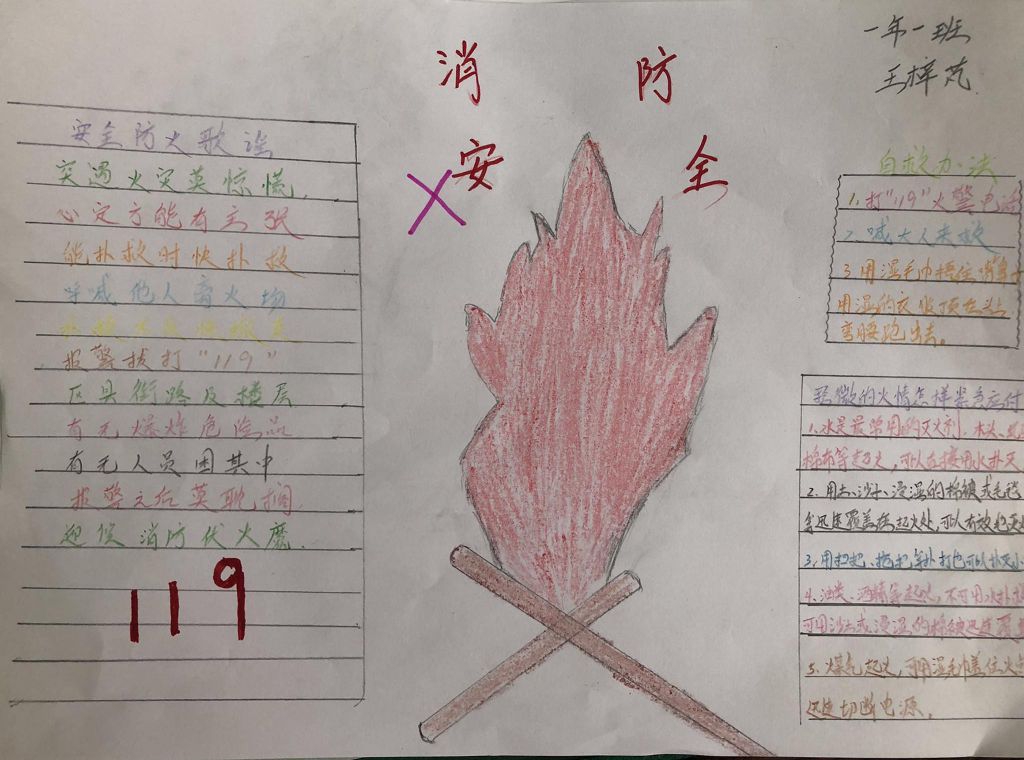 一年一班
王梓芃
消 防
安 全
安全防火歌谣
突遇火灾莫惊慌，
心定方能有主张
能扑救时快扑救
呼喊他人离火场
报警拔打“119”
区县街路及楼层
有无爆炸危险品
有无人员困其中
报警之后莫耽搁
迎候消防伏火魔
119
自救办法
1. 打“119”火警电话
2. 喊大人来救
3. 用湿毛巾捂住嘴鼻
用湿的衣服顶在头上
弯腰跑出去。
轻微的火情怎样紧急应付
1. 水是最常用的灭火剂，木头、
棉布等起火，可以直接用水扑灭
2. 用土、沙子、浸湿的棉被或毛毯
等迅速覆盖在起火处，可以有效
3. 用扫把、拖把等扑打也可以扑灭小
4. 油类、酒精等起火，不可用水扑
可用沙土或浸湿的棉被迅速覆盖
5. 煤气起火，可用湿毛巾盖住火
迅速切断电源。